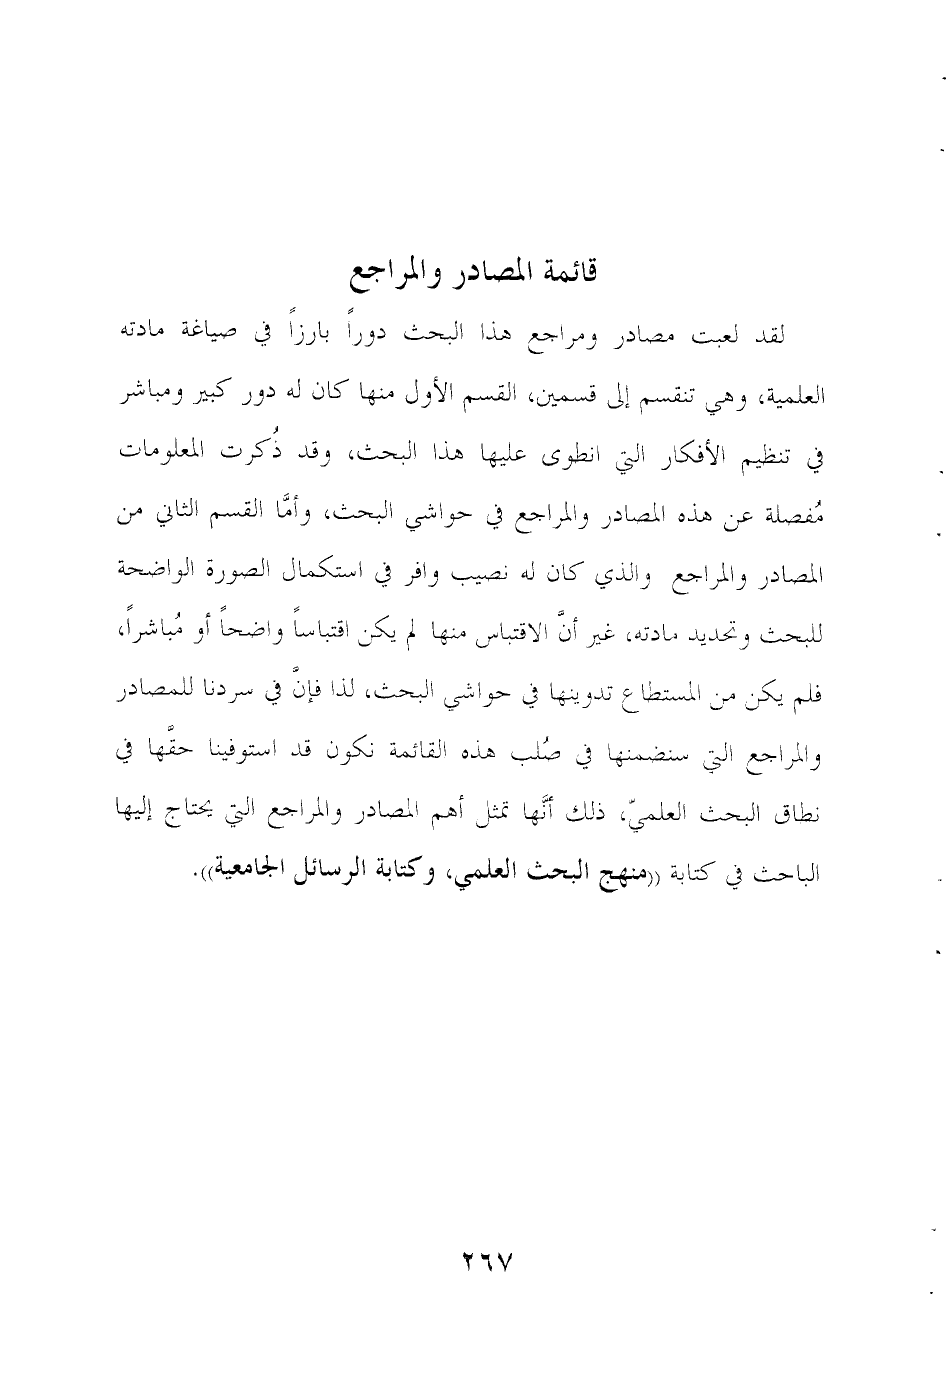 قائمة المصادر والمراجع
لقد لعبت مصادر ومراجع هذا البحث دوراً بارزاً في صياغة مادته
العلمية، وهي تنقسم إلى قسمين، القسم الأول منها كان له دور كبير ومباشر
في تنظيم الأفكار التي انطوى عليها هذا البحث، وقد ذُكرت المعلومات
مُفصلة عن هذه المصادر والمراجع في حواشي البحث، وأمَّا القسم الثاني من
المصادر والمراجع والذي كان له نصيب وافر في استكمال الصورة الواضحة
للبحث وتحديد مادته، غير أنَّ الاقتباس منها لم يكن اقتباساً واضحاً أو مُباشراً،
فلم يكن من المستطاع تدوينها في حواشي البحث، لذا فإنَّ في سردنا للمصادر
والمراجع التي سنضمنها في صُلب هذه القائمة نكون قد استوفينا حقَّها في
نطاق البحث العلميّ، ذلك أنَّها تمثل أهم المصادر والمراجع التي يحتاج إليها
الباحث في كتابة ((منهج البحث العلمي، وكتابة الرسائل الجامعية)).
٢٦٧